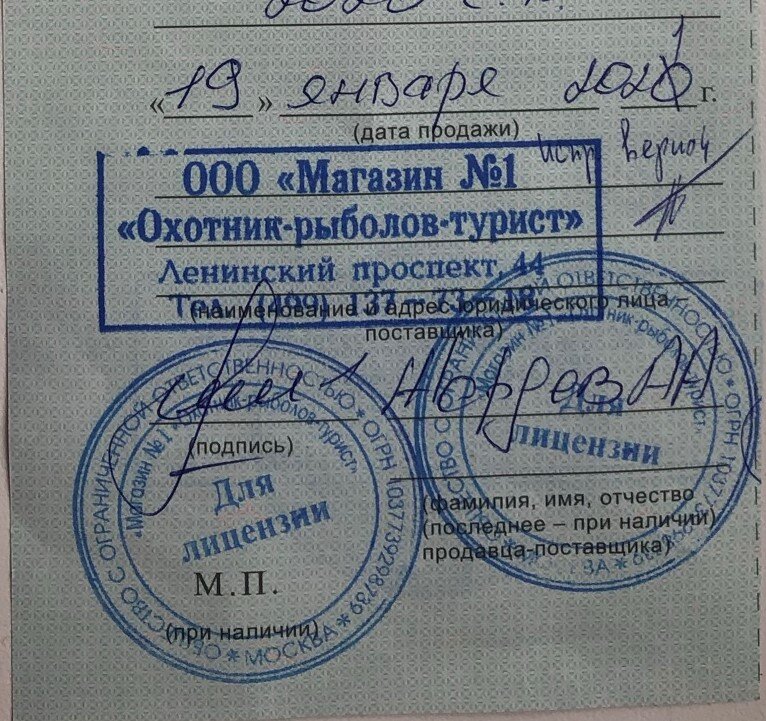 «19» января 2021 г.
(дата продажи)
испр верить
ООО «Магазин №1
«Охотник-рыболов-турист»
Ленинский проспект, 44
Тел. (499) 137
(наименование и адрес юридического лица
поставщика)
(подпись)
(фамилия, имя, отчество
(последнее – при наличии)
продавца-поставщика)
М.П.
(при наличии)
ОБЩЕСТВО С ОГРАНИЧЕННОЙ ОТВЕТСТВЕННОСТЬЮ * ОГРН 1037739298739 * МОСКВА *
«Магазин №1 «Охотник-рыболов-турист»
Для
лицензии
ОБЩЕСТВО С ОГРАНИЧЕННОЙ ОТВЕТСТВЕННОСТЬЮ * ОГРН 1037739298739 * МОСКВА *
«Магазин №1 «Охотник-рыболов-турист»
Для
лицензии